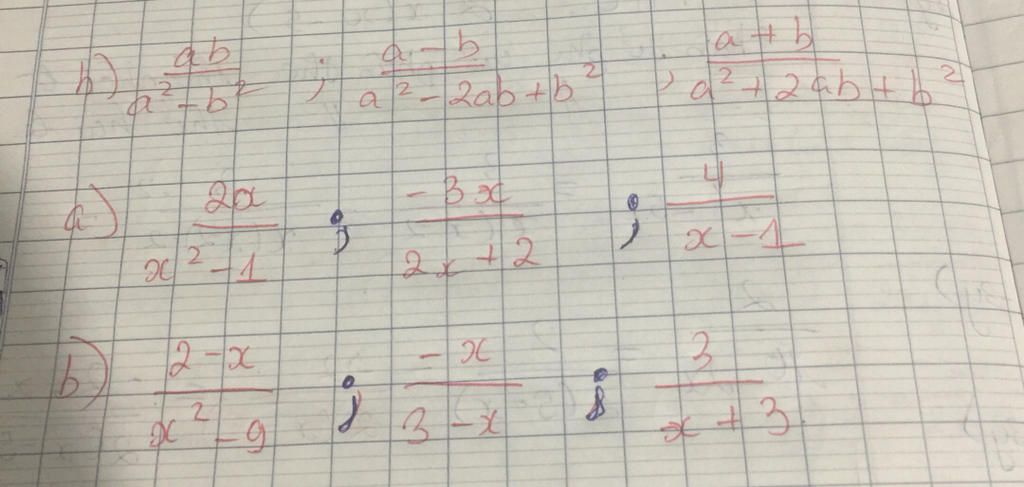 h) ab/(a² - b²) ; (a - b)/(a² - 2ab + b²) ; (a + b)/(a² + 2ab + b²)
a) 2x/(x² - 1) ; -3x/(2x + 2) ; 4/(x - 1)
b) (2 - x)/(x² - 9) ; -x/(3 - x) ; 3/(x + 3)